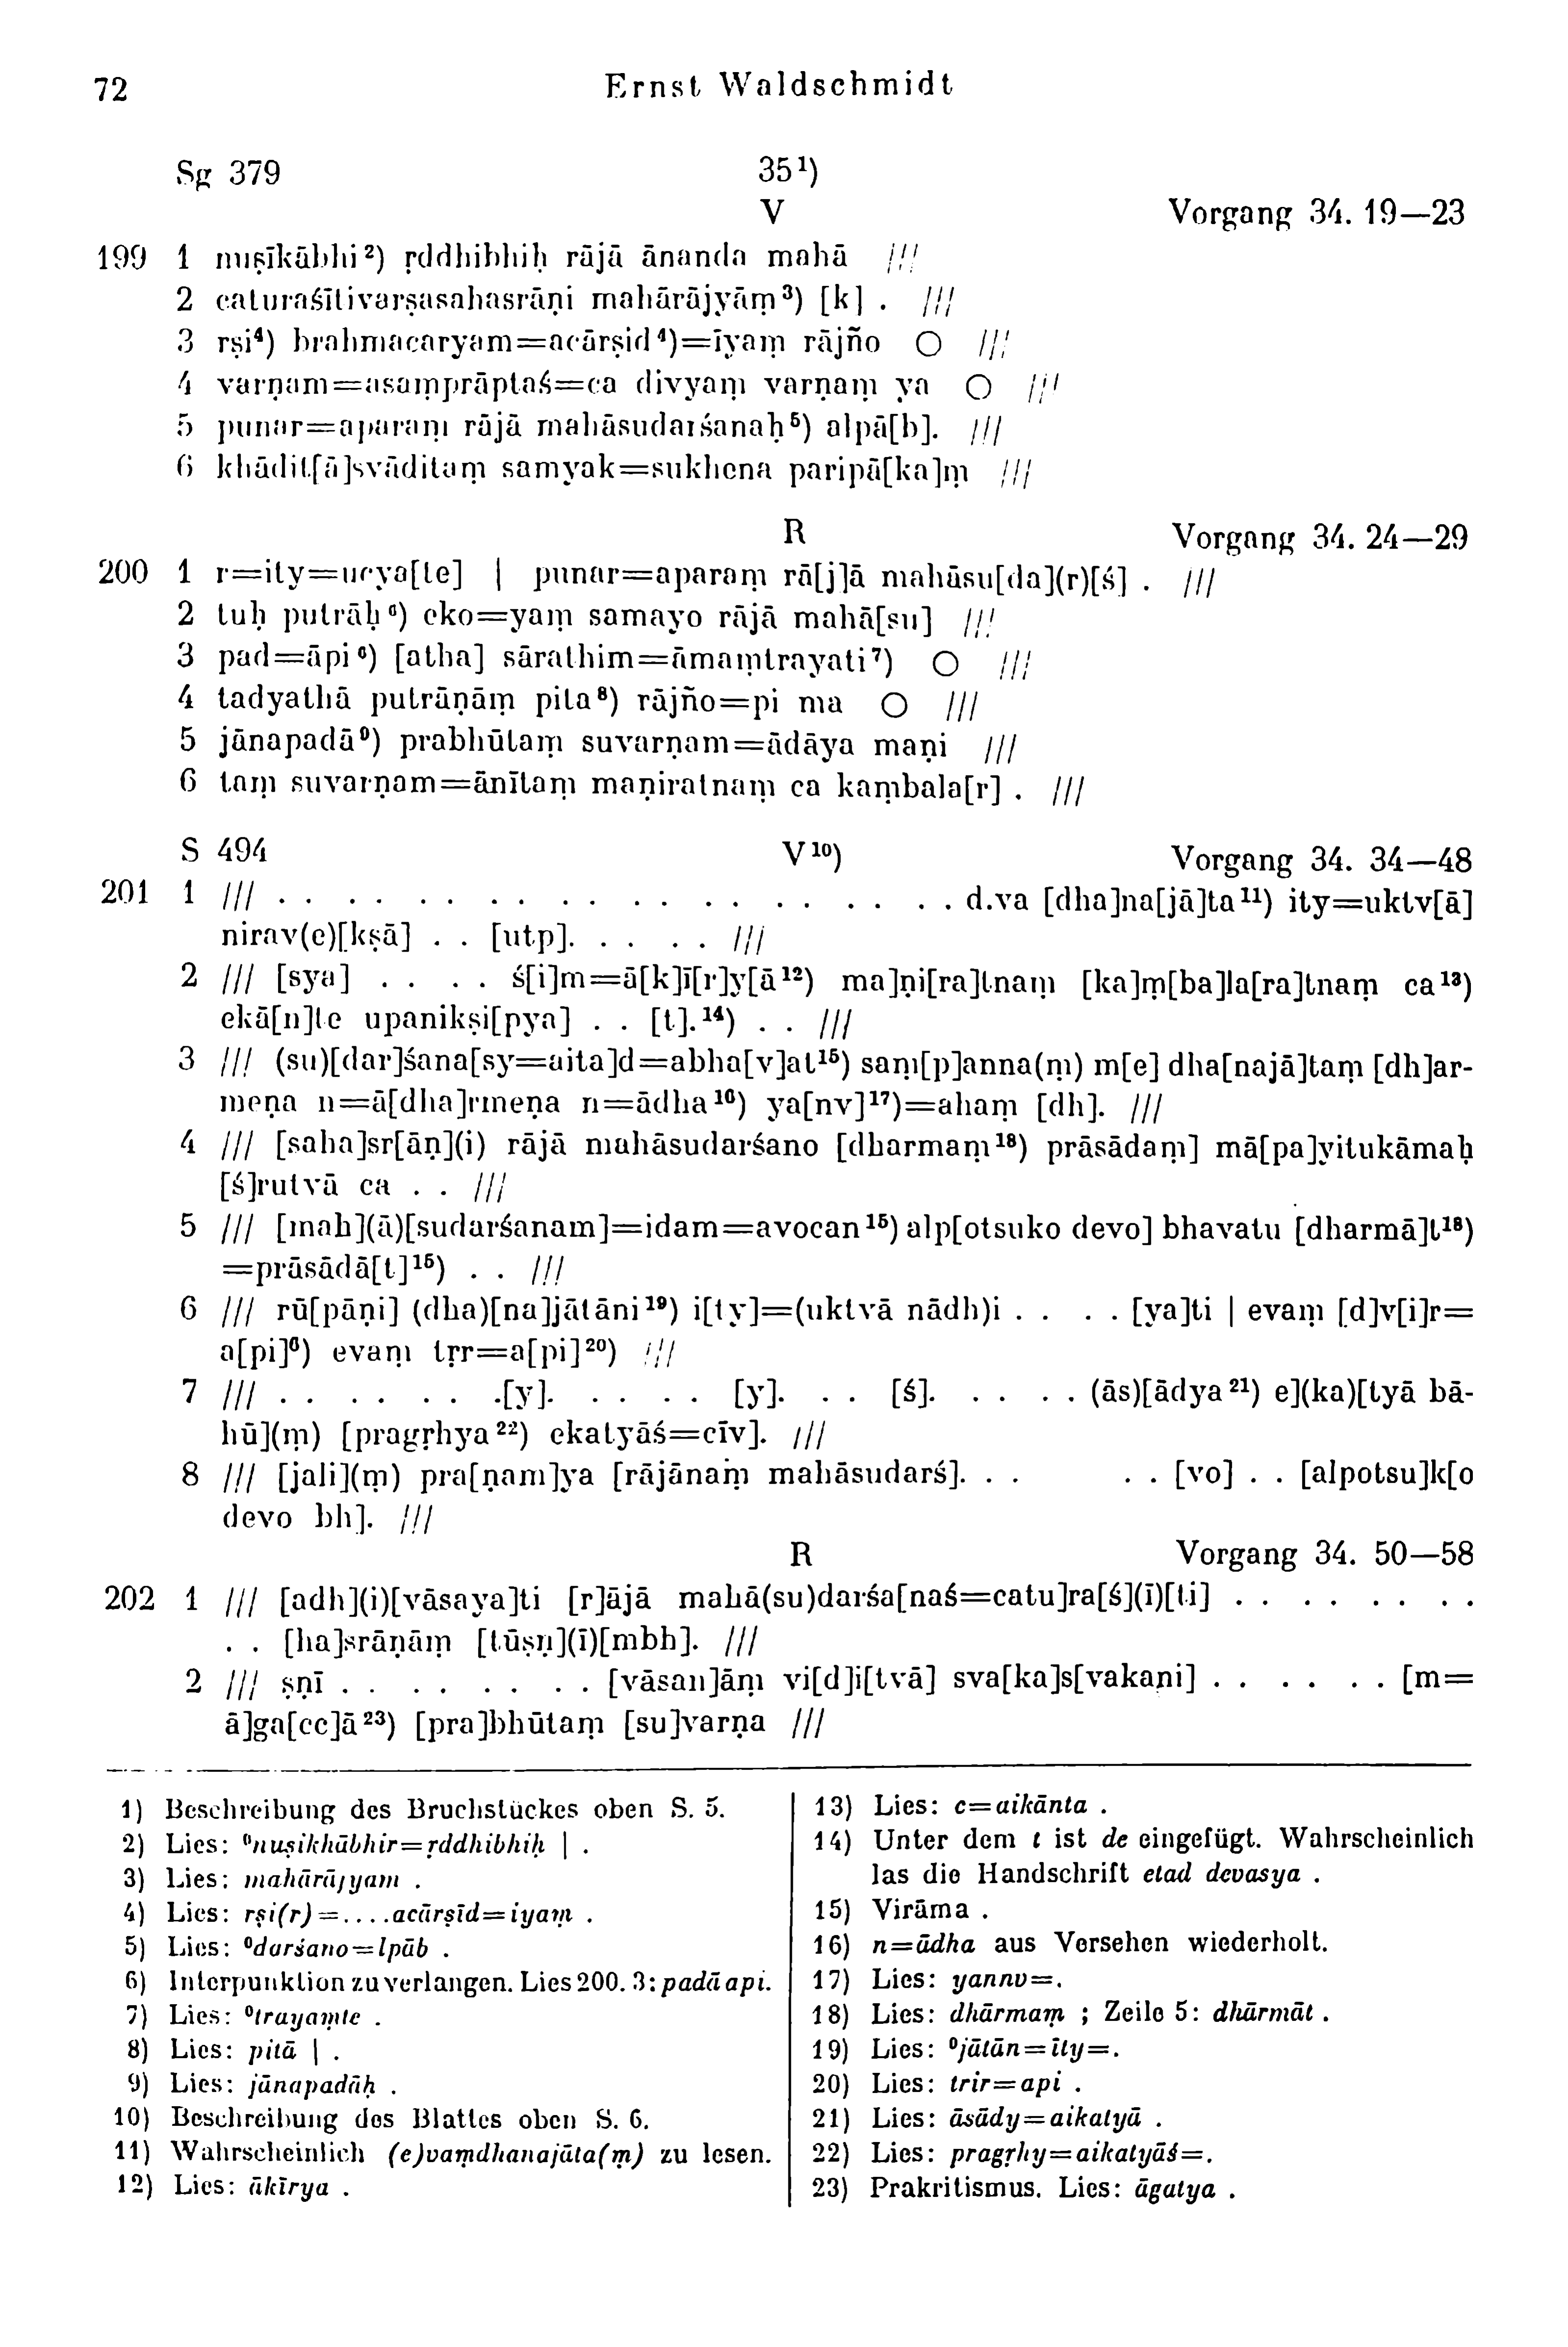 72 Ernst Waldschmidt
Sg 379 35¹)
V Vorgang 34. 19—23
199 1 nuṣīkābhi²) ṛddhibhiḥ rājā ānanda mahā ///
2 caturaśītivarṣasahasrāṇi mahārājyāṃ³) [k] . ///
3 rṣi⁴) brahmacaryam=acārṣid⁴)=īyaṃ rājño ○ ///
4 varṇam=asaṃprāptaś=ca divyaṃ varṇaṃ ya ○ ///
5 punar=aparaṃ rājā mahāsudarśanaḥ⁵) alpā[b]. ///
6 khādit[ā]svāditaṃ samyak=sukhena paripā[ka]ṃ ///
R Vorgang 34. 24—29
200 1 r=ity=ucya[te] | punar=aparaṃ rā[j]ā mahāsu[da](r)[ś] . ///
2 tuḥ putrāḥ⁶) eko=yaṃ samayo rājā mahā[su] ///
3 pad=āpi⁶) [atha] sārathim=āmaṃtrayati⁷) ○ ///
4 tadyathā putrāṇāṃ pita⁸) rājño=pi ma ○ ///
5 jānapadā⁹) prabhūtaṃ suvarṇam=ādāya maṇi ///
6 taṃ suvarṇam=ānītaṃ maṇiratnaṃ ca kaṃbala[r] . ///
S 494 V¹⁰) Vorgang 34. 34—48
201 1 /// . . . . . . . . . . . . . . . . . . . . d.va [dha]na[jā]ta¹¹) ity=uktv[ā]
nirav(e)[kṣā] . . [utp]. . . . . ///
2 /// [sya] . . . . ś[i]m=ā[k]ī[r]y[ā¹²) ma]ṇi[ra]tnaṃ [ka]ṃ[ba]la[ra]tnaṃ ca¹³)
ekā[n]te upanikṣi[pya] . . [t].¹⁴) . . ///
3 /// (su)[dar]śana[sy=aita]d=abha[v]at¹⁵) saṃ[p]anna(ṃ) m[e] dha[najā]taṃ [dh]ar-
meṇa n=ā[dha]rmeṇa n=ādha¹⁶) ya[nv]¹⁷)=ahaṃ [dh]. ///
4 /// [saha]sr[āṇ](i) rājā mahāsudarśano [dharmaṃ¹⁸) prāsādaṃ] mā[pa]yitukāmaḥ
[ś]rutvā ca . . ///
5 /// [mah](ā)[sudarśanam]=idam=avocan¹⁵) alp[otsuko devo] bhavatu [dharmā]t¹⁸)
=prāsādā[t]¹⁵) . . ///
6 /// rū[pāṇi] (dha)[na]jātāni¹⁹) i[ty]=(uktvā nādh)i . . . . [ya]ti | evaṃ [d]v[i]r=
a[pi]⁶) evaṃ tṛr=a[pi]²⁰) ///
7 /// . . . . . . .[y]. . . . . [y]. . . [ś]. . . . . (ās)[ādya²¹) e](ka)[tyā bā-
hū](ṃ) [pragṛhya²²) ekatyāś=cīv]. ///
8 /// [jali](ṃ) pra[ṇam]ya [rājānaṁ mahāsudarś]. . . . . [vo] . . [alpotsu]k[o
devo bh]. ///
R Vorgang 34. 50—58
202 1 /// [adh](i)[vāsaya]ti [r]ājā mahā(su)darśa[naś=catu]ra[ś](ī)[ti] . . . . . . . .
. . [ha]srāṇāṃ [tūṣṇ](ī)[mbh]. ///
2 /// ṣṇī . . . . . . . . [vāsan]āṃ vi[d]i[tvā] sva[ka]s[vakani] . . . . . . [m=
ā]ga[cc]ā²³) [pra]bhūtaṃ [su]varṇa ///
1) Beschreibung des Bruchstückes oben S. 5.
2) Lies: ⁰nuṣikhābhir=ṛddhibhiḥ | .
3) Lies: mahārājyam .
4) Lies: rṣi(r)=....acārṣīd=iyaṃ .
5) Lies: ⁰darśano=lpāb .
6) Interpunktion zu verlangen. Lies 200. 3: padā api.
7) Lies: ⁰trayaṃte .
8) Lies: pitā | .
9) Lies: jānapadāḥ .
10) Beschreibung des Blattes oben S. 6.
11) Wahrscheinlich (e)vaṃdhanajāta(ṃ) zu lesen.
12) Lies: ākīrya .
13) Lies: c=aikānta .
14) Unter dem t ist de eingefügt. Wahrscheinlich
las die Handschrift etad devasya .
15) Virāma .
16) n=ādha aus Versehen wiederholt.
17) Lies: yannv=.
18) Lies: dhārmaṃ ; Zeile 5: dhārmāt .
19) Lies: ⁰jātān=īty=.
20) Lies: trir=api .
21) Lies: āsādy=aikatyā .
22) Lies: pragṛhy=aikatyāś=.
23) Prakritismus. Lies: āgatya .